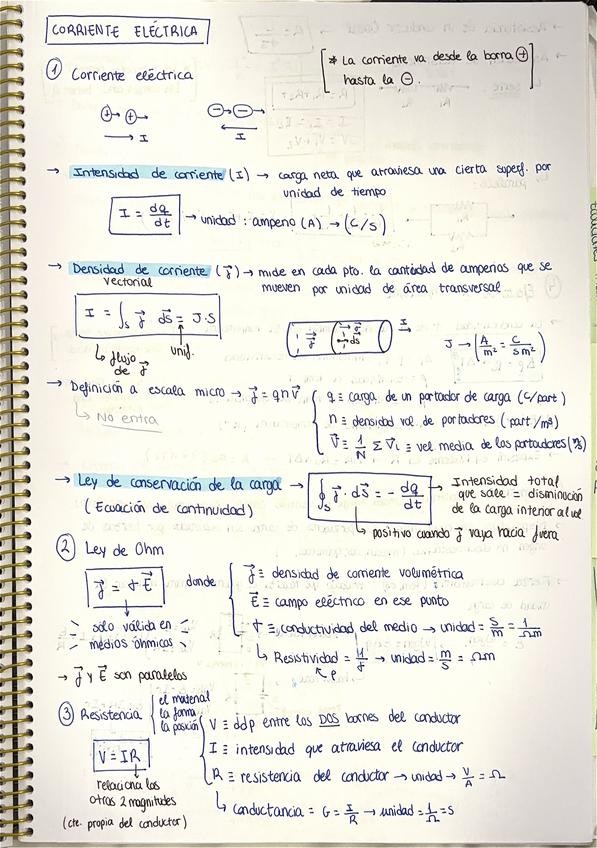 CORRIENTE ELÉCTRICA
* La corriente va desde la borna ⊕
hasta la ⊖.
① Corriente eléctrica
⊕→ ⊕→ ⊖→⊖→
→ I ← I
→ Intensidad de corriente (I) → carga neta que atraviesa una cierta superf. por
unidad de tiempo
I = dq/dt → unidad: amperio (A) → (C/s)
→ Densidad de corriente (J⃗) → mide en cada pto. la cantidad de amperios que se
vectorial mueven por unidad de área transversal
I = ∫s J⃗ ds⃗ = J·S
↳ flujo de J⃗ unif.
J⃗ J⃗ ds⃗ I⃗
J → (A/m² = C/sm²)
→ Definición a escala micro → J⃗ = qnv⃗
↳ No entra
q ≡ carga de un portador de carga (C/part)
n ≡ densidad vol. de portadores (part/m³)
v⃗ ≡ 1/N Σ v⃗i ≡ vel media de los portadores (m/s)
→ Ley de conservación de la carga → ∮s J⃗ · ds⃗ = - dq/dt → Intensidad total
que sale = disminución
(Ecuación de continuidad) de la carga interior al vol
↳ positivo cuando J⃗ vaya hacia fuera
② Ley de Ohm
J⃗ = σ E⃗ donde
J⃗ ≡ densidad de corriente volumétrica
E⃗ ≡ campo eléctrico en ese punto
σ ≡ conductividad del medio → unidad = S/m = 1/Ωm
↳ Resistividad = 1/σ → unidad = m/S = Ωm
ρ
sólo válida en
medios óhmicos
→ J⃗ y E⃗ son paralelos
③ Resistencia
el material
la forma
la posición
V = IR
relaciona las
otras 2 magnitudes
(cte. propia del conductor)
V ≡ ddp entre los DOS bornes del conductor
I ≡ intensidad que atraviesa el conductor
R ≡ resistencia del conductor → unidad → V/A = Ω
↳ conductancia = G = I/R → unidad = 1/Ω = S